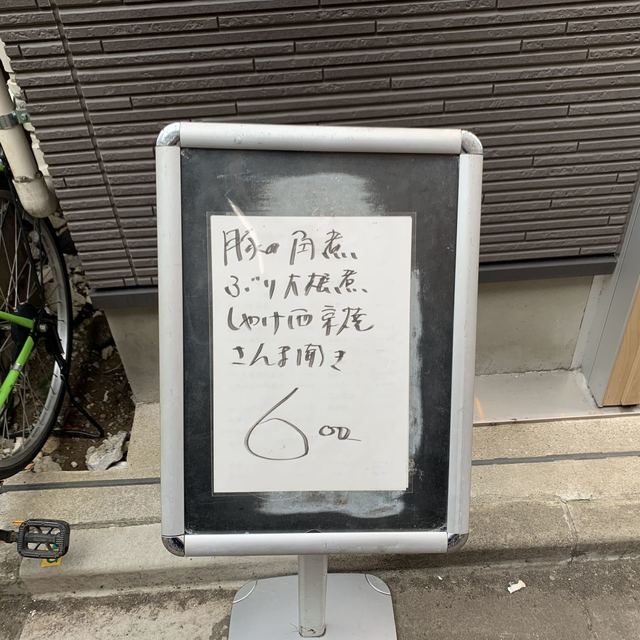 豚の角煮
ぶり大根煮
しゃけ西京焼
さんま開き
600